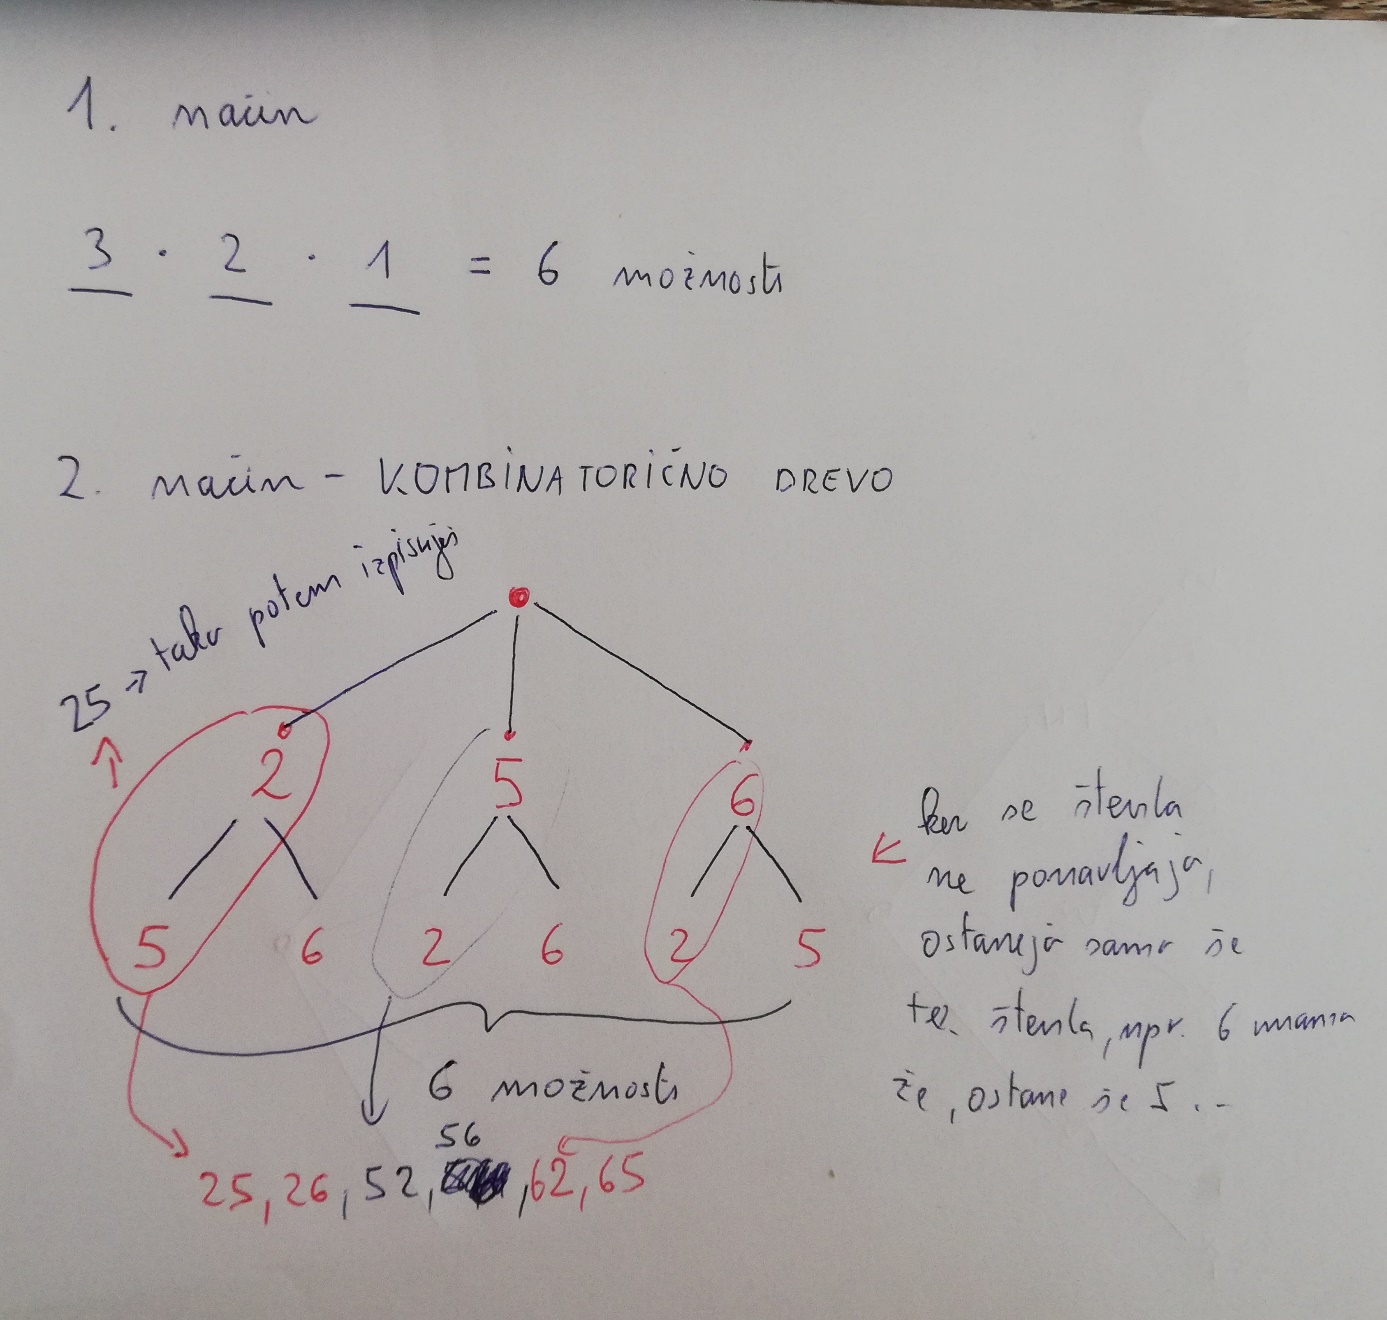 1. način
3 · 2 · 1 = 6 možnosti
2. način - KOMBINATORIČNO DREVO
25 → tako potem izpisuješ
2 5 6
5 6 2 6 2 5
ker se števila
ne ponavljaja,
ostaneja samo še
te. števila, npr. 6 imamo
že, ostane še 5 ..
6 možnosti
56
25, 26, 52, , 62, 65